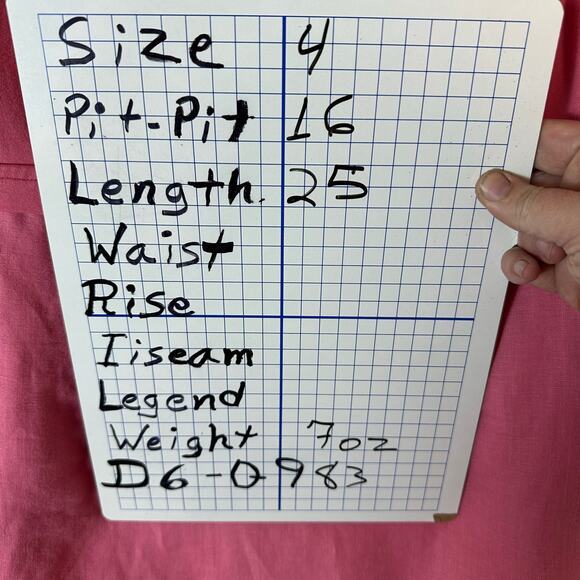 Size 4
Pit-Pit 16
Length. 25
Waist
Rise
Iiseam
Legend
Weight 7oz
D6-0983